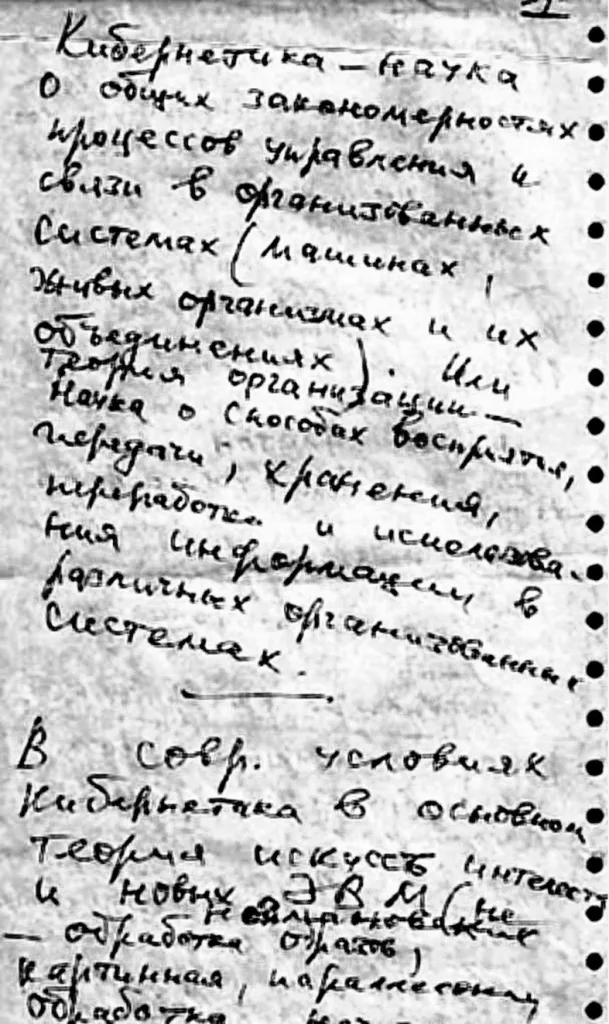 1
Кибернетика – наука
о общих закономерностях
процессов управления и
связи в организованных
системах (машинах,
живых организмах и их
объединениях). Или
теория организации —
Наука о способах восприятия,
передачи, хранения,
переработки и использова-
ния информации в
различных организованных
системах.
В совр. условиях
Кибернетика в основном
теория искусств интеллект
и новых ЭВМ (не
неймановских
– обработка образов,
картинная, параллельная
обработка